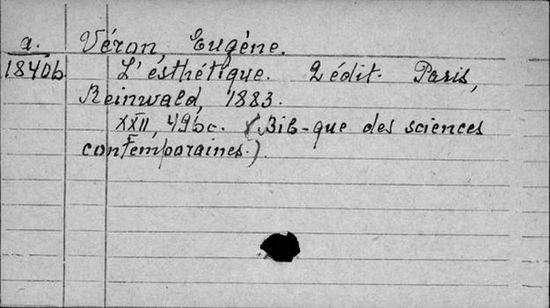 a. Véron, Eugène.
1840b L'esthétique. 2 édit. Paris,
Reinwald, 1883.
XXII, 496 c. (Bib-que des sciences
contemporaines.).